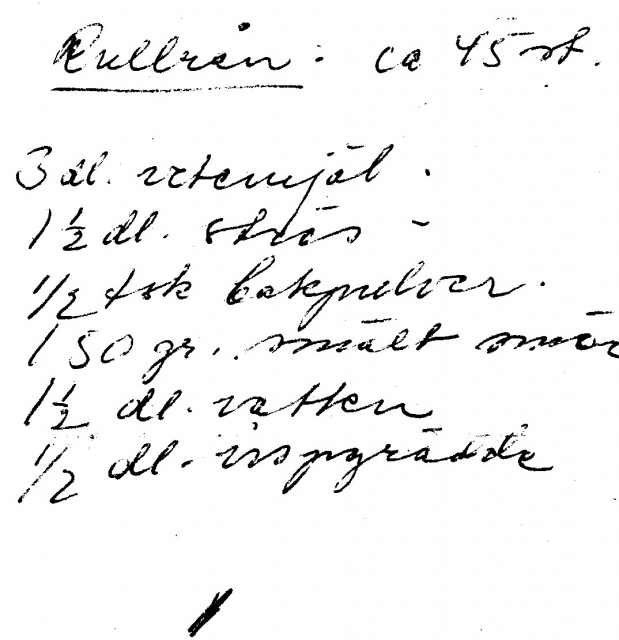 Rullrån: ca 45 st.
3 dl. vetemjöl.
1 ½ dl. strös -
1/2 tsk bakpulver.
150 gr. smält smör
1 ½ dl. vatten
1/2 dl. vispgrädde